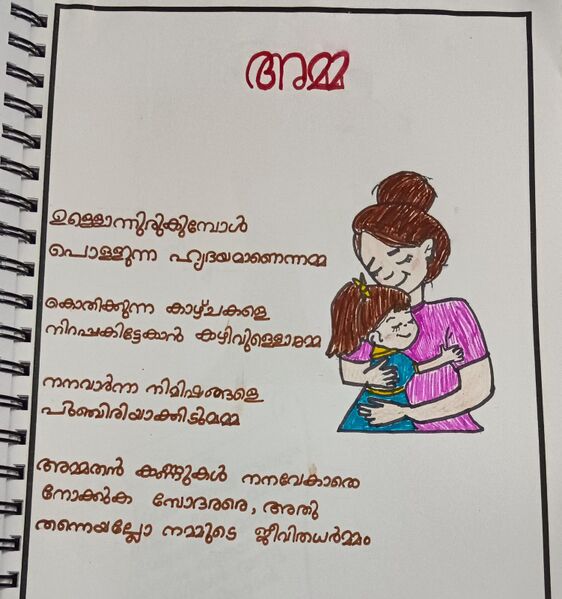 അമ്മ
ഉള്ളൊന്നുരുകുമ്പോൾ
പൊള്ളുന്ന ഹൃദയമാണെന്നമ്മ
കൊതിക്കുന്ന കാഴ്ചകളെ
നിറഷകിട്ടേകാൻ കഴിവുള്ളൊരമ്മ
നനവാർന്ന നിമിഷങ്ങളെ
പുഞ്ചിരിയാക്കിടുമമ്മ
അമ്മതൻ കണ്ണുകൾ നനവേകാതെ
നോക്കുക സോദരരെ, അതു
തന്നെയല്ലോ നമ്മുടെ ജീവിതധർമ്മം